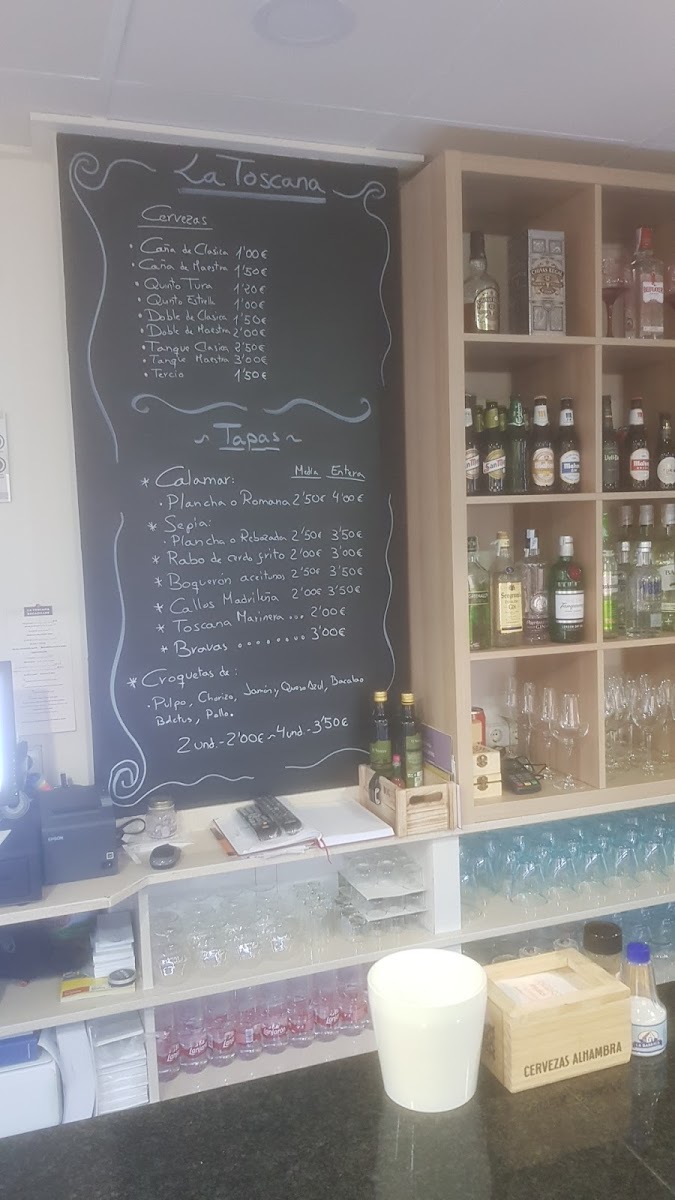 La Toscana
Cervezas
• Caña de Clasica 1'00€
• Caña de Maestra 1'50€
• Quinto Turia 1'20€
• Quinto Estrella 1'00€
• Doble de Clasica 1'50€
• Doble de Maestra 2'00€
• Tanque Clasica 2'50€
• Tanque Maestra 3'00€
• Tercio 1'50€
~ Tapas ~
* Calamar: Media Entera
• Plancha o Romana 2'50€ 4'00€
* Sepia:
• Plancha o Rebozada 2'50€ 3'50€
* Rabo de cerdo frito 2'00€ 3'00€
* Boqueron aceitunas 2'50€ 3'50€
* Callos Madrileña 2'00€ 3'50€
* Toscana Marinera ... 2'00€
* Bravas ........ 3'00€
* Croquetas de:
• Pulpo, Chorizo, Jamón, Queso Azul, Bacalao
Boletus, Pollo.
2 und.-2'00€ ~ 4 und.-3'50€
EPSON
CERVEZAS ALHAMBRA